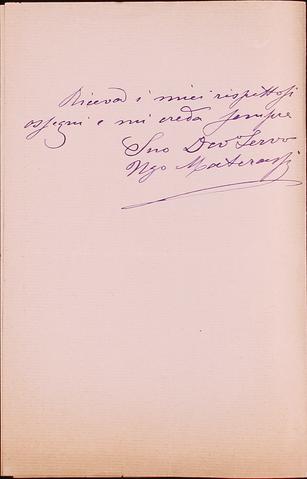 Riceva i miei rispettosi
ossegni e mi creda sempre
Suo Devo Servo
Ugo Materassi